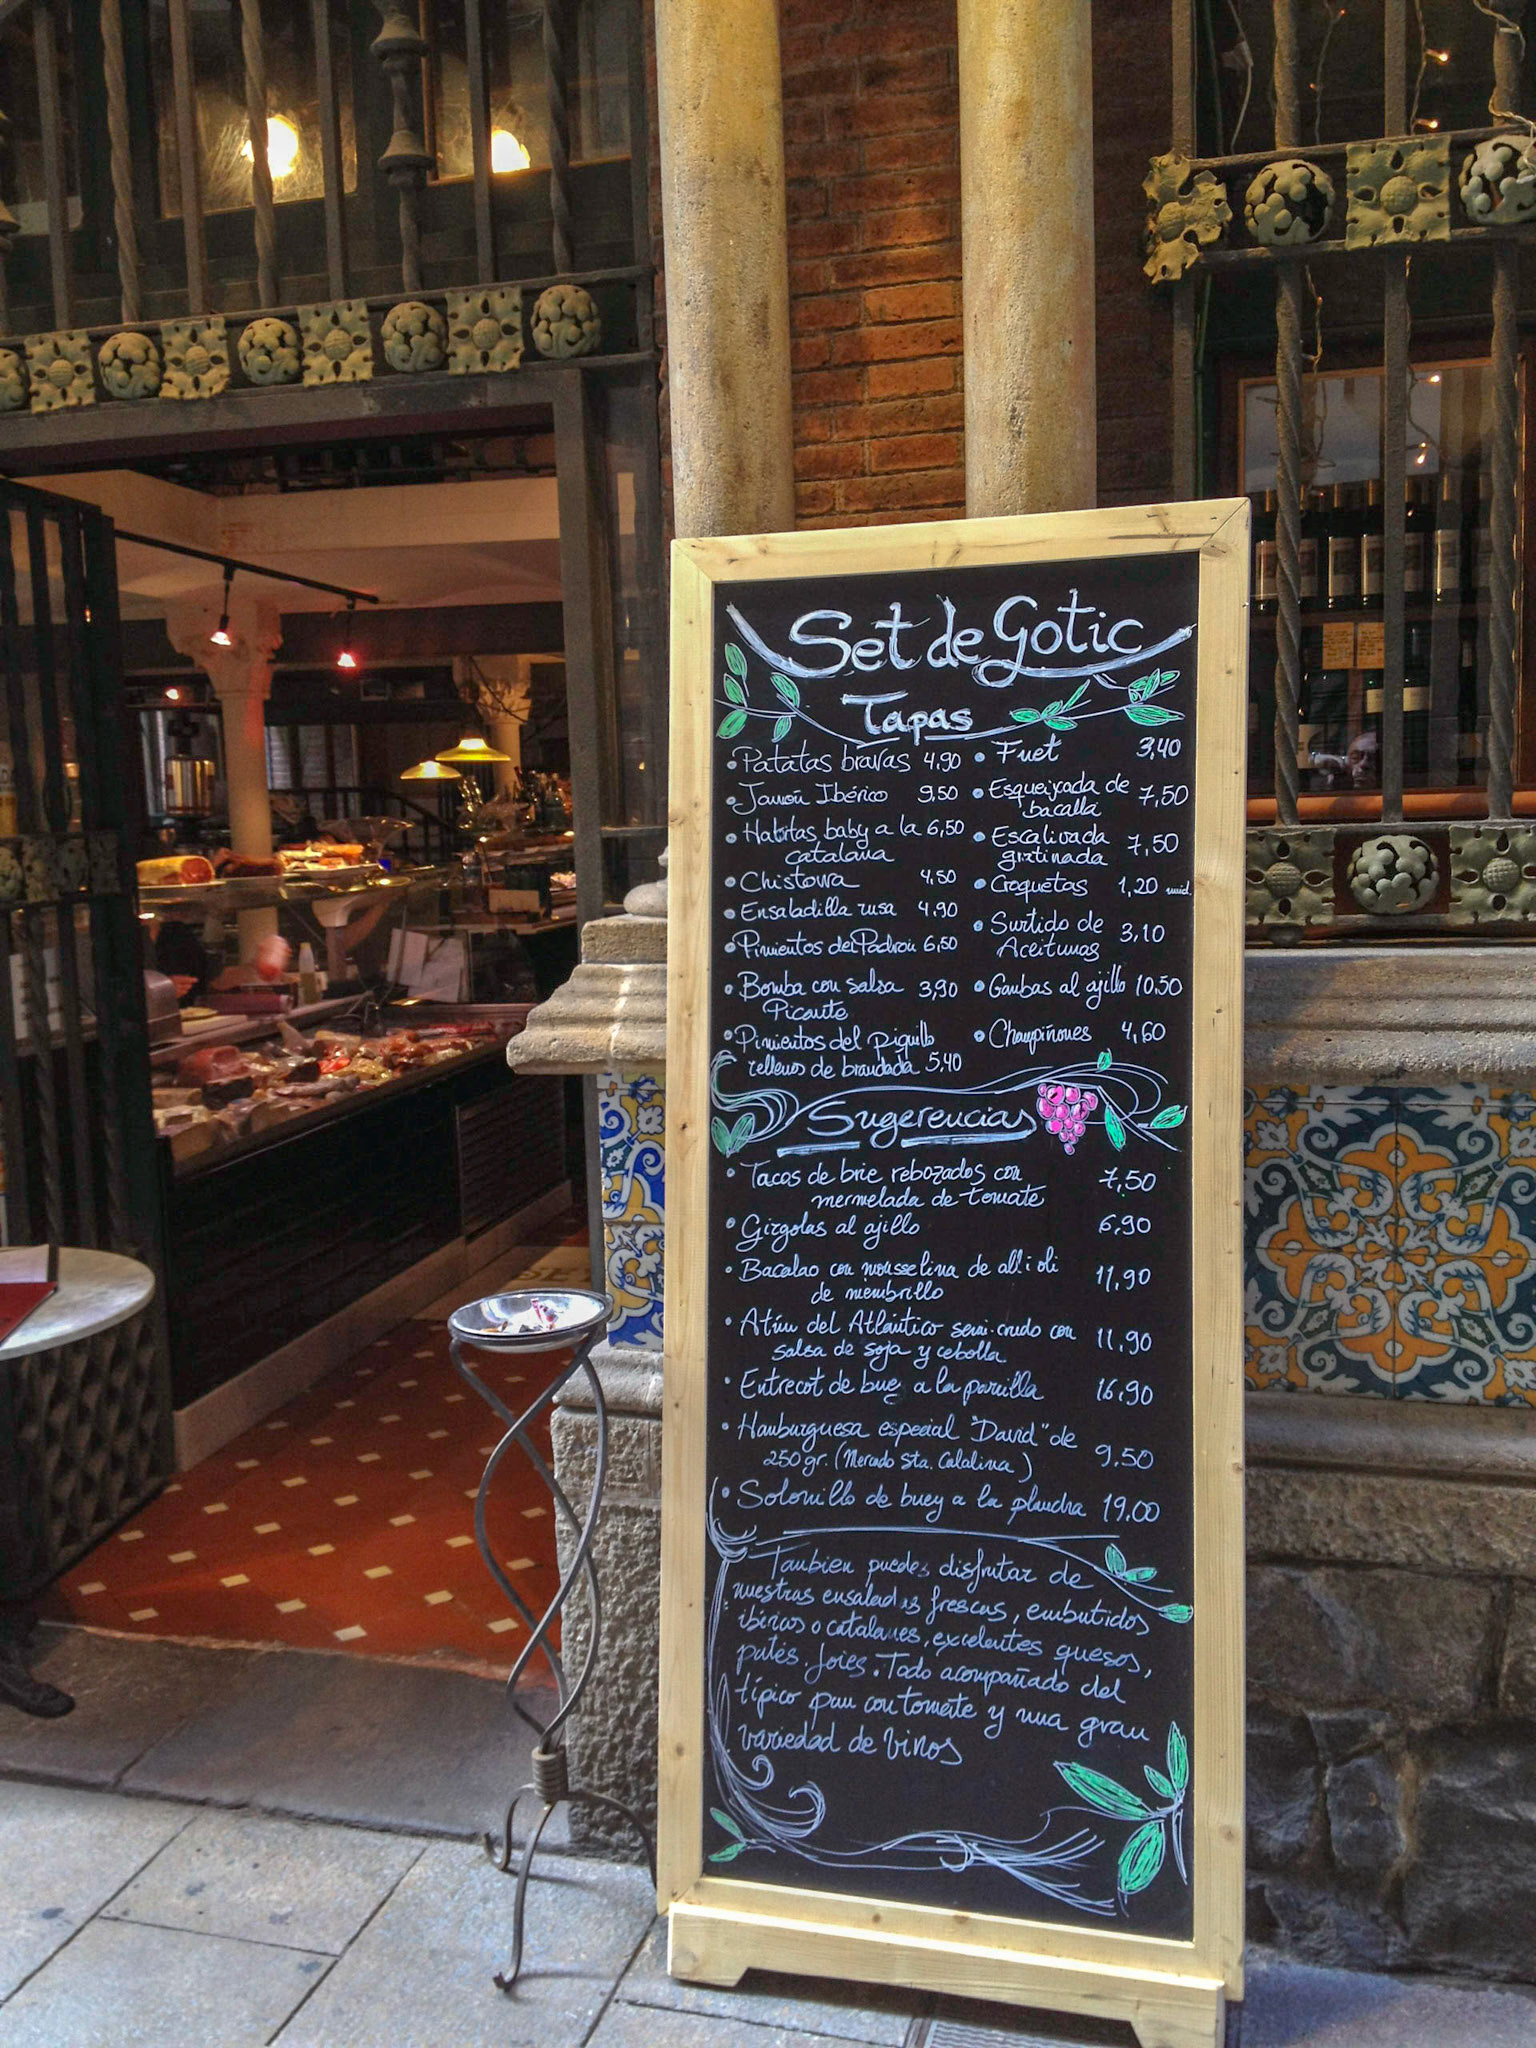 Set de Gotic
Tapas
Patatas bravas 4.90
Jamón Ibérico 9.50
Habitas baby a la 6,50
catalana
Chistorra 4,50
Ensaladilla rusa 4.90
Pimientos del Padrón 6,50
Bomba con salsa 3,90
Picante
Pimientos del piquillo
rellenos de brandada 5,40
Fuet 3,40
Esqueixada de
bacallà 7,50
Escalivada
gratinada 7,50
Croquetas 1,20 unid.
Surtido de
Aceitunas 3,10
Gambas al ajillo 10.50
Champiñones 4,60
Sugerencias
Tacos de brie rebozados con
mermelada de tomate 7,50
Girgolas al ajillo 6,90
Bacalao con mousselina de all i oli
de membrillo 11,90
Atún del Atlántico semi-crudo con
salsa de soja y cebolla 11,90
Entrecot de buey a la parrilla 16.90
Hamburguesa especial "David" de
250 gr. (Mercado Sta. Catalina) 9.50
Solomillo de buey a la plancha 19.00
Tambien puedes disfrutar de
nuestras ensaladas frescas, embutidos
ibéricos o catalanes, excelentes quesos,
patés, foies. Todo acompañado del
típico pan con tomate y una gran
variedad de vinos